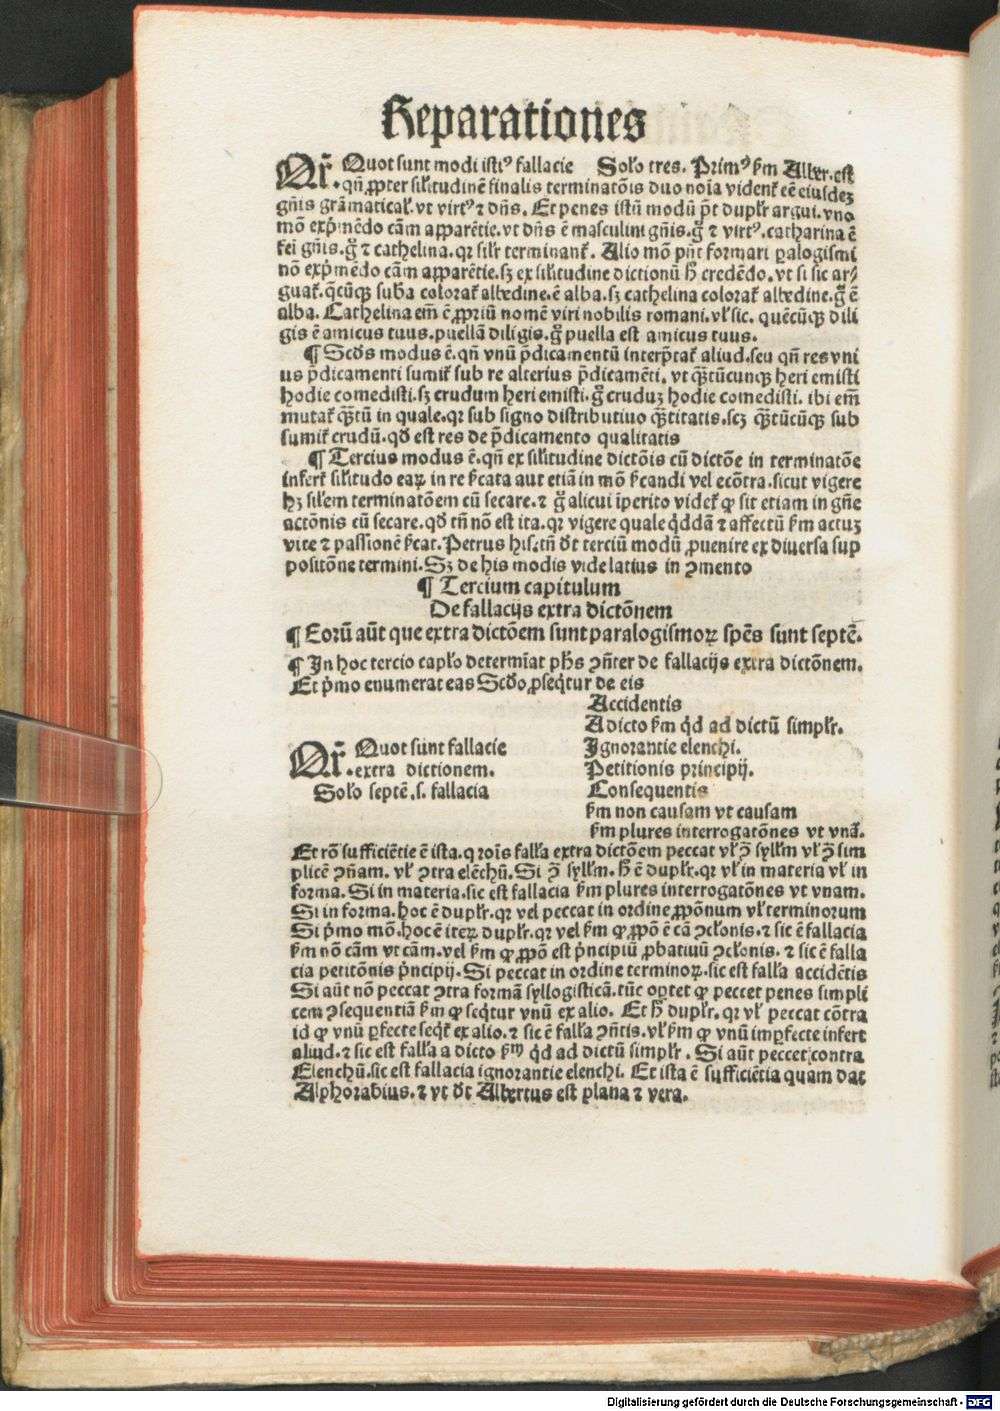 Reparationes
Qr̄. Quot sunt modi istiꝰ fallacie Soło tres. Primꝰ ẜm Alber. est
qn̄ ꝓpter sił̓itudinē finalis terminatōis duo noīa vident᷑ eē eiusdeꝫ
gn̄is grāmatical᷑. vt virtꝰ ⁊ dn̄s. Et penes istū modū pn̄t dupłr argui. vno
mō exp̄mēdo cām apparētie. vt dn̄s ē masculini gn̄is. gͦ ⁊ virtꝰ. catharina ē
fei gn̄is. gͦ ⁊ cathelina. qr siłr terminant᷑. Alio mō pn̄t formari ꝑalogismi
nō exp̄mēdo cām apparētie. sꝫ ex sił̓itudine dictionū h̄ credēdo. vt si sic ar⸗
guat᷑. q̄cūqꝫ subā colorat᷑ albedine. ē alba. sꝫ cathelina colorat᷑ albedine. gͦ ē
alba. Cathelina em̄ ē ꝓpriū nomē viri nobilis romani. vł sic. quēcūqꝫ dili
gis ē amicus tuus. puellā diligis. gͦ puella est amicus tuus.
¶ Scd̓s modus ē. qn̄ vnū p̄dicamentū interp̄tat᷑ aliud. seu qn̄ res vni
us p̄dicamenti sumit᷑ sub re alterius p̄dicamēti. vt qͣꝫtūcunqꝫ heri emisti
hodie comedisti. sꝫ crudum heri emisti. gͦ cruduꝫ hodie comedisti. ibi em̄
mutat᷑ qͣꝫtū in quale. qr sub signo distributiuo qͣꝫtitatis. scꝫ qͣꝫtūcūqꝫ sub
sumit᷑ crudū. qd̓ est res de p̄dicamento qualitatis
¶ Tercius modus ē. qn̄ ex sił̓itudine dictōis cū dictōe in terminatōe
infert᷑ sił̓itudo eaꝝ in re ẜcata aut etiā in mō ẜcandi vel ecōtra. sicut vigere
hꝫ siłem terminatōem cū secare. ⁊ gͦ alicui īperito videt᷑ ꝙ sit etiam in gn̄e
actōnis cū secare. qd̓ tn̄ nō est ita. qr vigere quale qͥddā ⁊ affectū ẜm actuꝫ
vite ⁊ passionē ẜcat. Petrus his. tn̄ dt̓ terciū modū ꝓuenire ex diuersa sup
positōne termini. Sꝫ de his modis vide latius in ꝯmento
¶ Tercium capitulum
De fallacijs extra dictōnem
¶ Eorū aūt que extra dictōem sunt paralogismoꝝ spēs sunt septē.
¶ In hoc tercio capło determīat ph̄s ꝯn̄ter de fallacijs extra dictōnem.
Et p̄mo enumerat eas Scd̓o ꝓseqͥtur de eis
Qr̄. Quot sunt fallacie
extra dictionem.
Soło septē. s. fallacia
Accidentis
A dicto ẜm qͥd ad dictū simpłr.
Ignorantie elenchi.
Petitionis principij.
Consequentis
ẜm non causam vt causam
ẜm plures interrogatōnes vt vnā.
Et rō sufficiētie ē ista. q roīs fałła extra dictōem peccat vł ꝯͣ syłłm vł ꝯͣ sim
plicē ꝯn̄am. vł ꝯtra elēchū. Si ꝯͣ syłłm. h̄ ē dupłr. qr vł in materia vł in
forma. Si in materia. sic est fallacia ẜm plures interrogatōnes vt vnam.
Si in forma. hoc ē dupłr. qr vel peccat in ordine ꝓpōnum vł terminorum
Si p̄mo mō. hoc ē iteꝝ dupłr. qr vel ẜm ꝙ ꝓpō ē cā ꝯcłonis. ⁊ sic ē fallacia
ẜm nō cām vt cām. vel ẜm ꝙ ꝓpō est p̄ncipiū ꝓbatiuū ꝯcłonis. ⁊ sic ē falla
cia petitōnis p̄ncipij. Si peccat in ordine terminoꝝ. sic est fałła accidētis
Si aūt nō peccat ꝯtra formā syllogisticā. tūc oꝑtet ꝙ peccet penes simpli
cem ꝯsequentiā ẜm ꝙ seqͥtur vnū ex alio. Et h̄ dupłr. qr vł peccat cōtra
id ꝙ vnū ꝑfecte seqͥt᷑ ex alio. ⁊ sic ē fałła ꝯn̄tis. vł ẜm ꝙ vnū imꝑfecte infert
aliud. ⁊ sic est fałła a dicto ẜm qͥd ad dictū simpłr. Si aūt peccet contra
Elenchū. sic est fallacia ignorantie elenchi. Et ista ē sufficiētia quam dat
Alphorabius. ⁊ vt dt̓ Albertus est plana ⁊ vera.
Digitalisierung gefördert durch die Deutsche Forschungsgemeinschaft - DFG